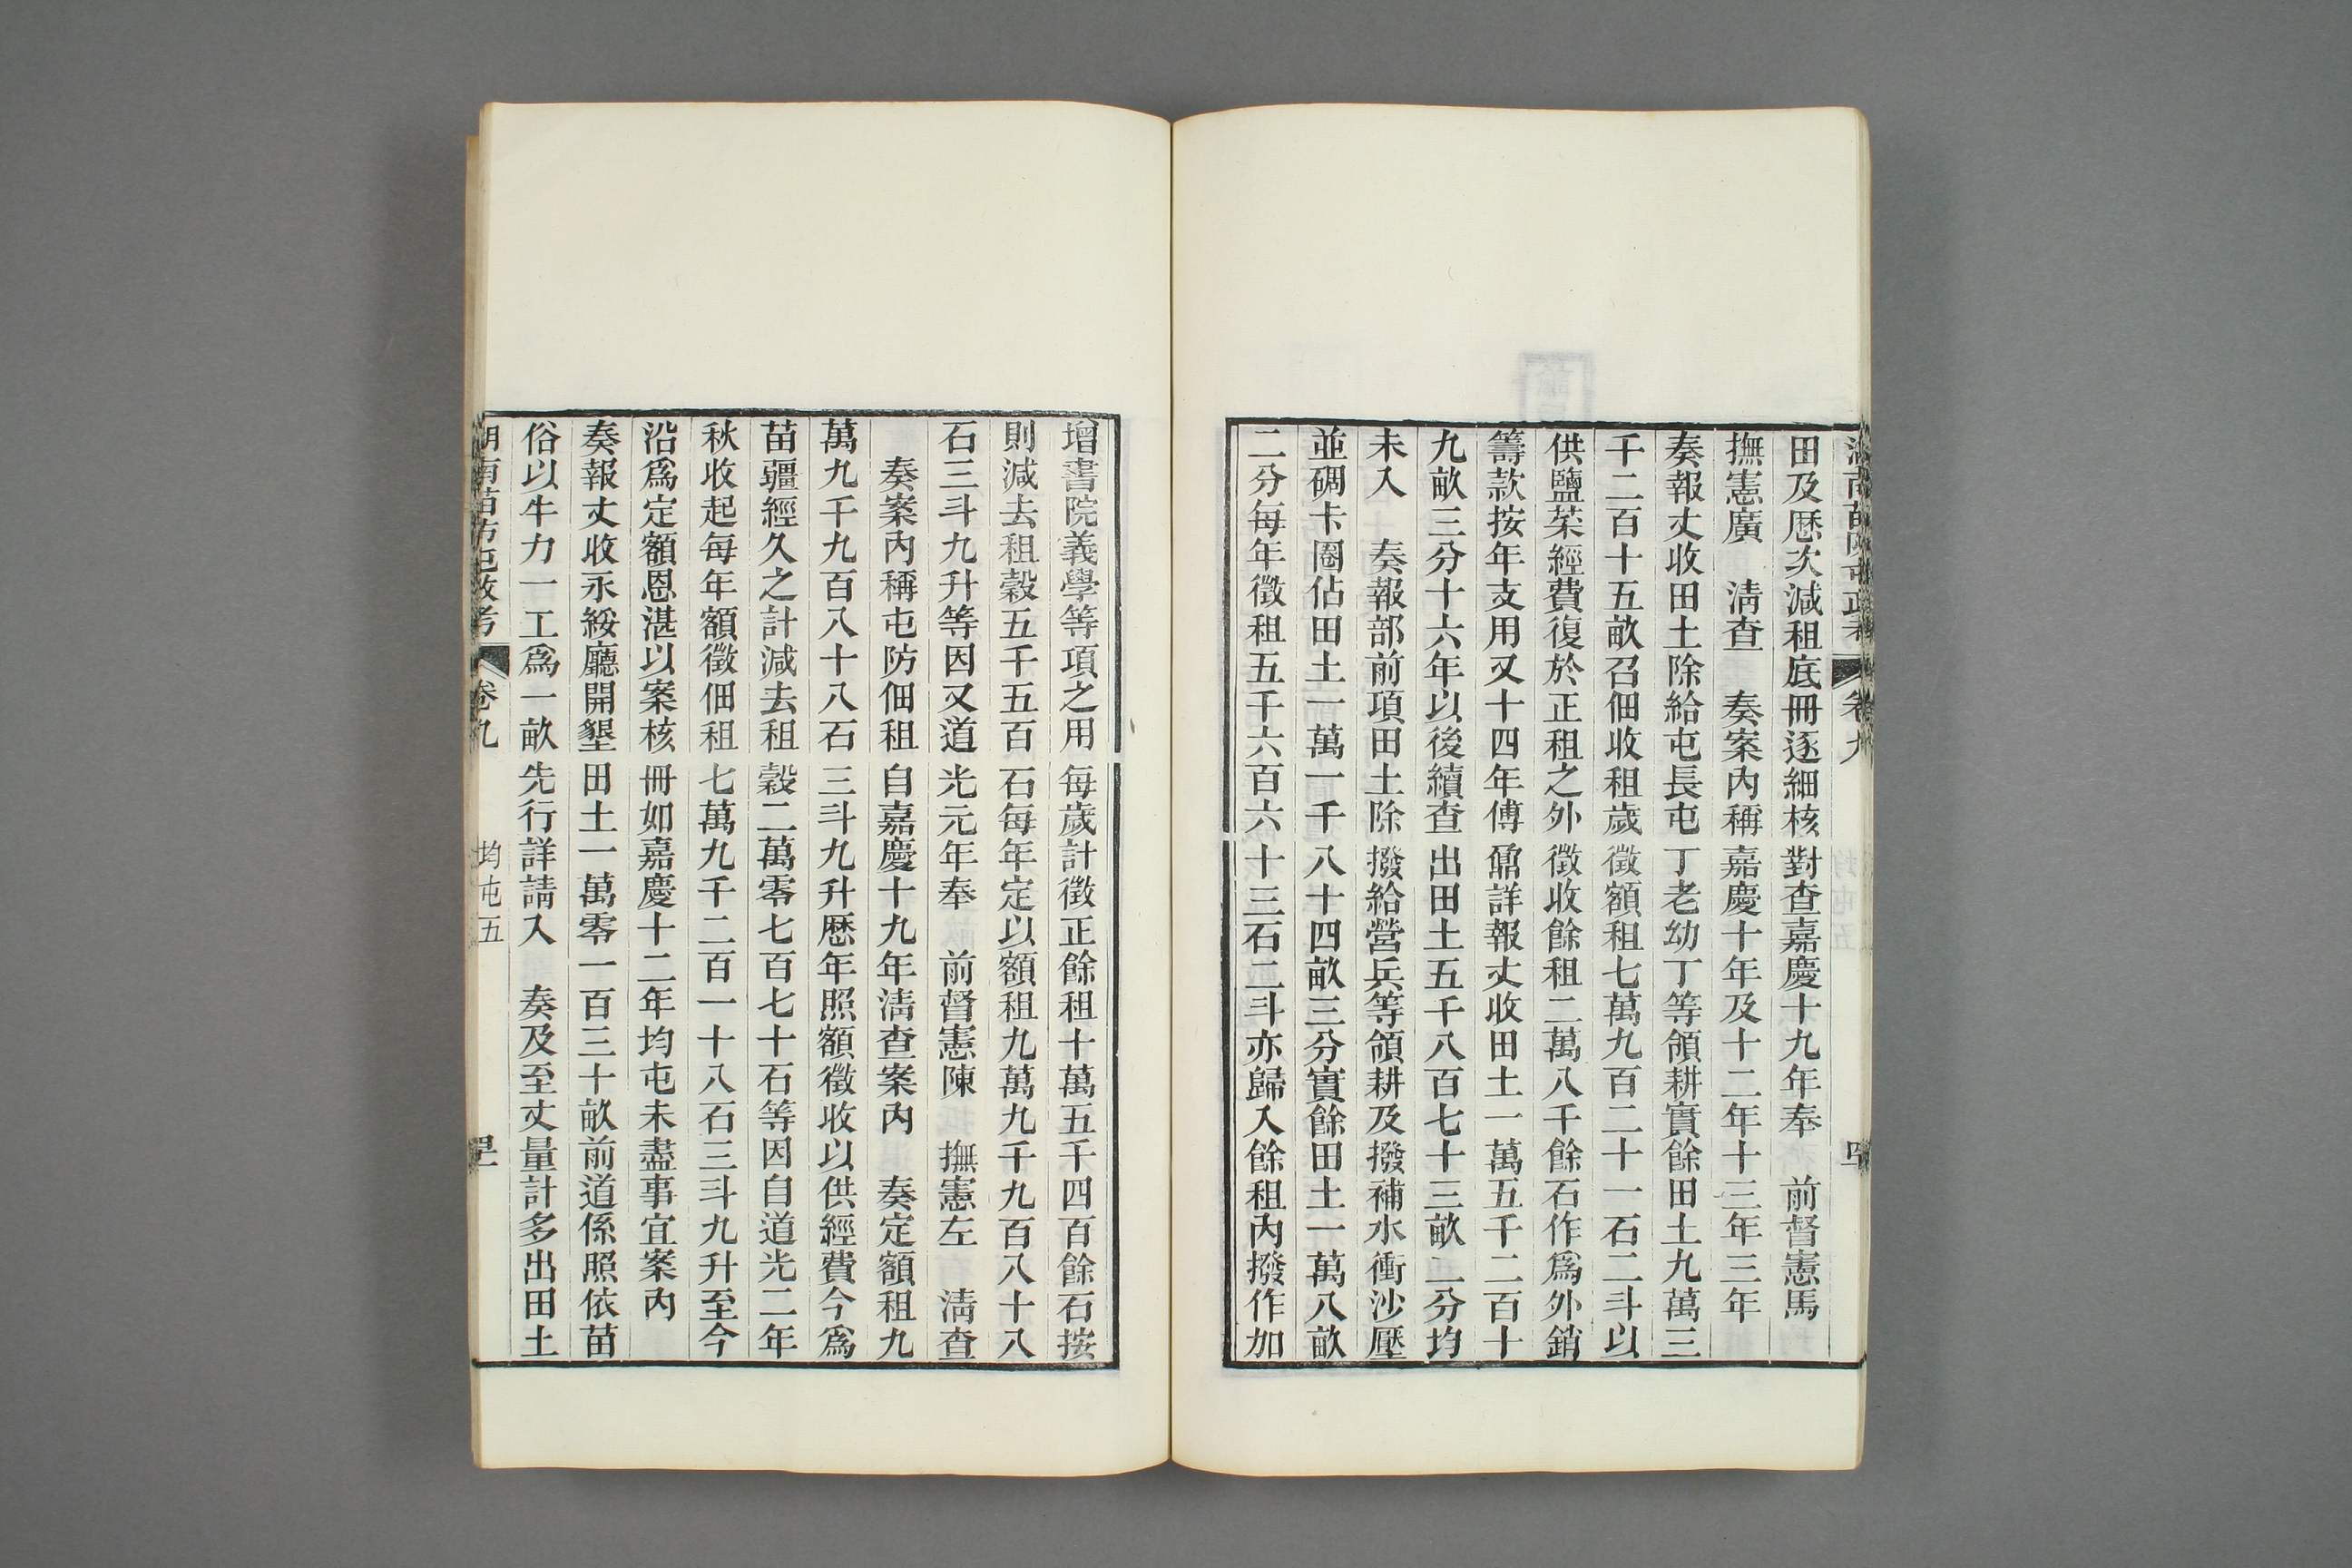 湖南苗防屯政考 卷九
田及厯次減租底冊逐細核對查嘉慶十九年奉 前督憲馬
撫憲廣 淸查 奏案內稱嘉慶十年及十二年十三年三年
奏報丈收田土除給屯長屯丁老幼丁等領耕實餘田土九萬三
千二百十五畝召佃收租歲徵額租七萬九百二十一石二斗以
供鹽菜經費復於正租之外徵收餘租二萬八千餘石作爲外銷
籌款按年支用又十四年傅鼐詳報丈收田土一萬五千二百十
九畝三分十六年以後續查出田土五千八百七十三畝二分均
未入 奏報部前項田土除撥給營兵等領耕及撥補水衝沙壓
並碉卡圈佔田土一萬一千八十四畝三分實餘田土一萬八畝
二分每年徵租五千六百六十三石二斗亦歸入餘租內撥作加
增書院義學等項之用每歲計徵正餘租十萬五千四百餘石按
則減去租穀五千五百石每年定以額租九萬九千九百八十八
石三斗九升等因又道光元年奉 前督憲陳 撫憲左 淸查
奏案內稱屯防佃租自嘉慶十九年淸查案內 奏定額租九
萬九千九百八十八石三斗九升厯年照額徵收以供經費今爲
苗疆經久之計減去租穀二萬零七百七十石等因自道光二年
秋收起每年額徵佃租七萬九千二百一十八石三斗九升至今
沿爲定額恩湛以案核冊如嘉慶十二年均屯未盡事宜案內
奏報丈收永綏廳開墾田土一萬零一百三十畝前道係照依苗
俗以牛力一工爲一畝先行詳請入 奏及至丈量計多出田土
湖南苗防屯政考 卷九 均屯五